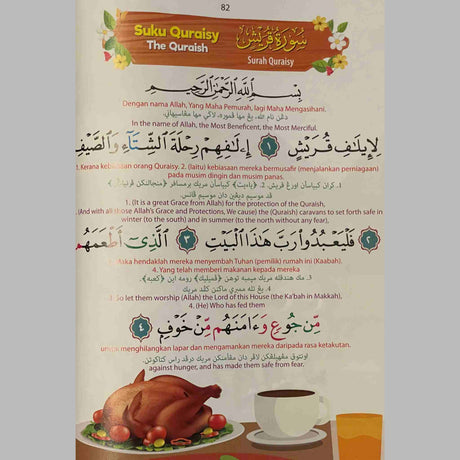 82
Suku Quraisy
The Quraish
سُورَةُ قُرَيْشٍ
Surah Quraisy
بِسْمِ ٱللَّهِ ٱلرَّحْمَٰنِ ٱلرَّحِيمِ
Dengan nama Allah, Yang Maha Pemurah, lagi Maha Mengasihani.
دڠن نام الله، يڠ مها ڤموره، لاڬي مها مڠاسيهاني.
In the name of Allah, the Most Beneficent, the Most Merciful.
لِإِيلَٰفِ قُرَيْشٍ ١ إِۦلَٰفِهِمْ رِحْلَةَ ٱلشِّتَآءِ وَٱلصَّيْفِ
1. Kerana kebiasaan orang Quraisy. 2. (Iaitu) kebiasaan mereka bermusafir (menjalankan perniagaan)
pada musim dingin dan musim panas.
١. كران كبياسأن اورڠ قريش. ٢. كبياسأن مريك برمسافر
ڤد موسيم ديڠين دان موسيم ڤانس.
1. (It is a great Grace from Allah) for the protection of the Quraish,
(And with all those Allah's Grace and Protections, We cause) the (Quraish) caravans to set forth safe in
winter (to the south) and in summer (to the north without any fear),
٢ فَلْيَعْبُدُوا۟ رَبَّ هَٰذَا ٱلْبَيْتِ ٣ ٱلَّذِىٓ أَطْعَمَهُم
Maka hendaklah mereka menyembah Tuhan (pemilik) rumah ini (Kaabah).
4. Yang telah memberi makanan kepada mereka
٣. مك هندقله مريك ميمبه توهن رومه اين "كعبه".
٤. يڠ تله ممبري ماكنن كڤد مريك
3. So let them worship (Allah) the Lord of this House (the Ka'bah in Makkah),
4. (He) Who has fed them
مِّن جُوعٍ وَءَامَنَهُم مِّنْ خَوْفٍۭ ٤
untuk menghilangkan lapar dan mengamankan mereka daripada rasa ketakutan.
اونتوق مڠهيلڠكن لاڤر دان مڠامنكن مريك درڤد راس كتاكوتن.
against hunger, and has made them safe from fear.